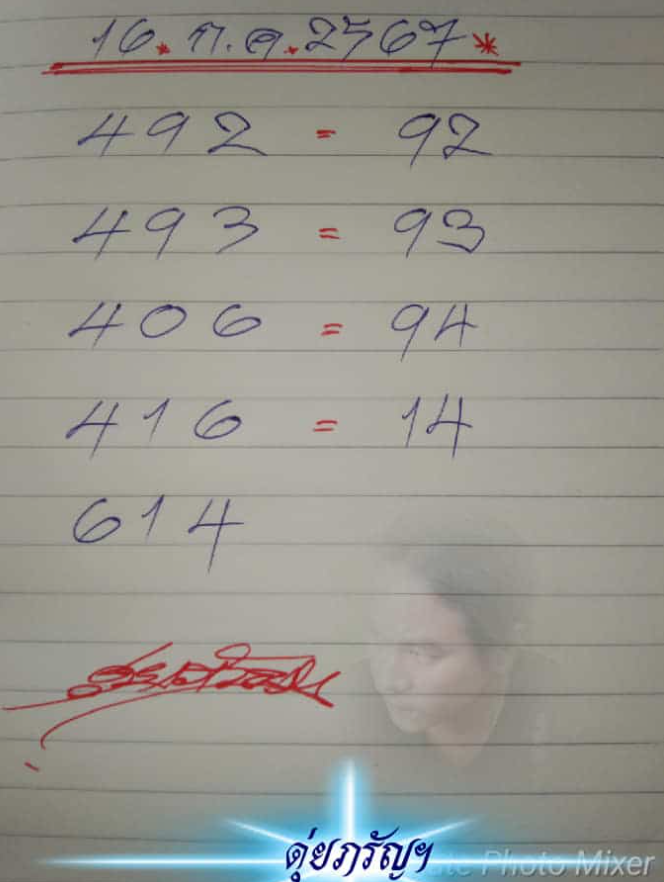 16. ก.ค.2567*
492 = 92
493 = 93
406 = 94
416 = 14
614
Photo Mixer